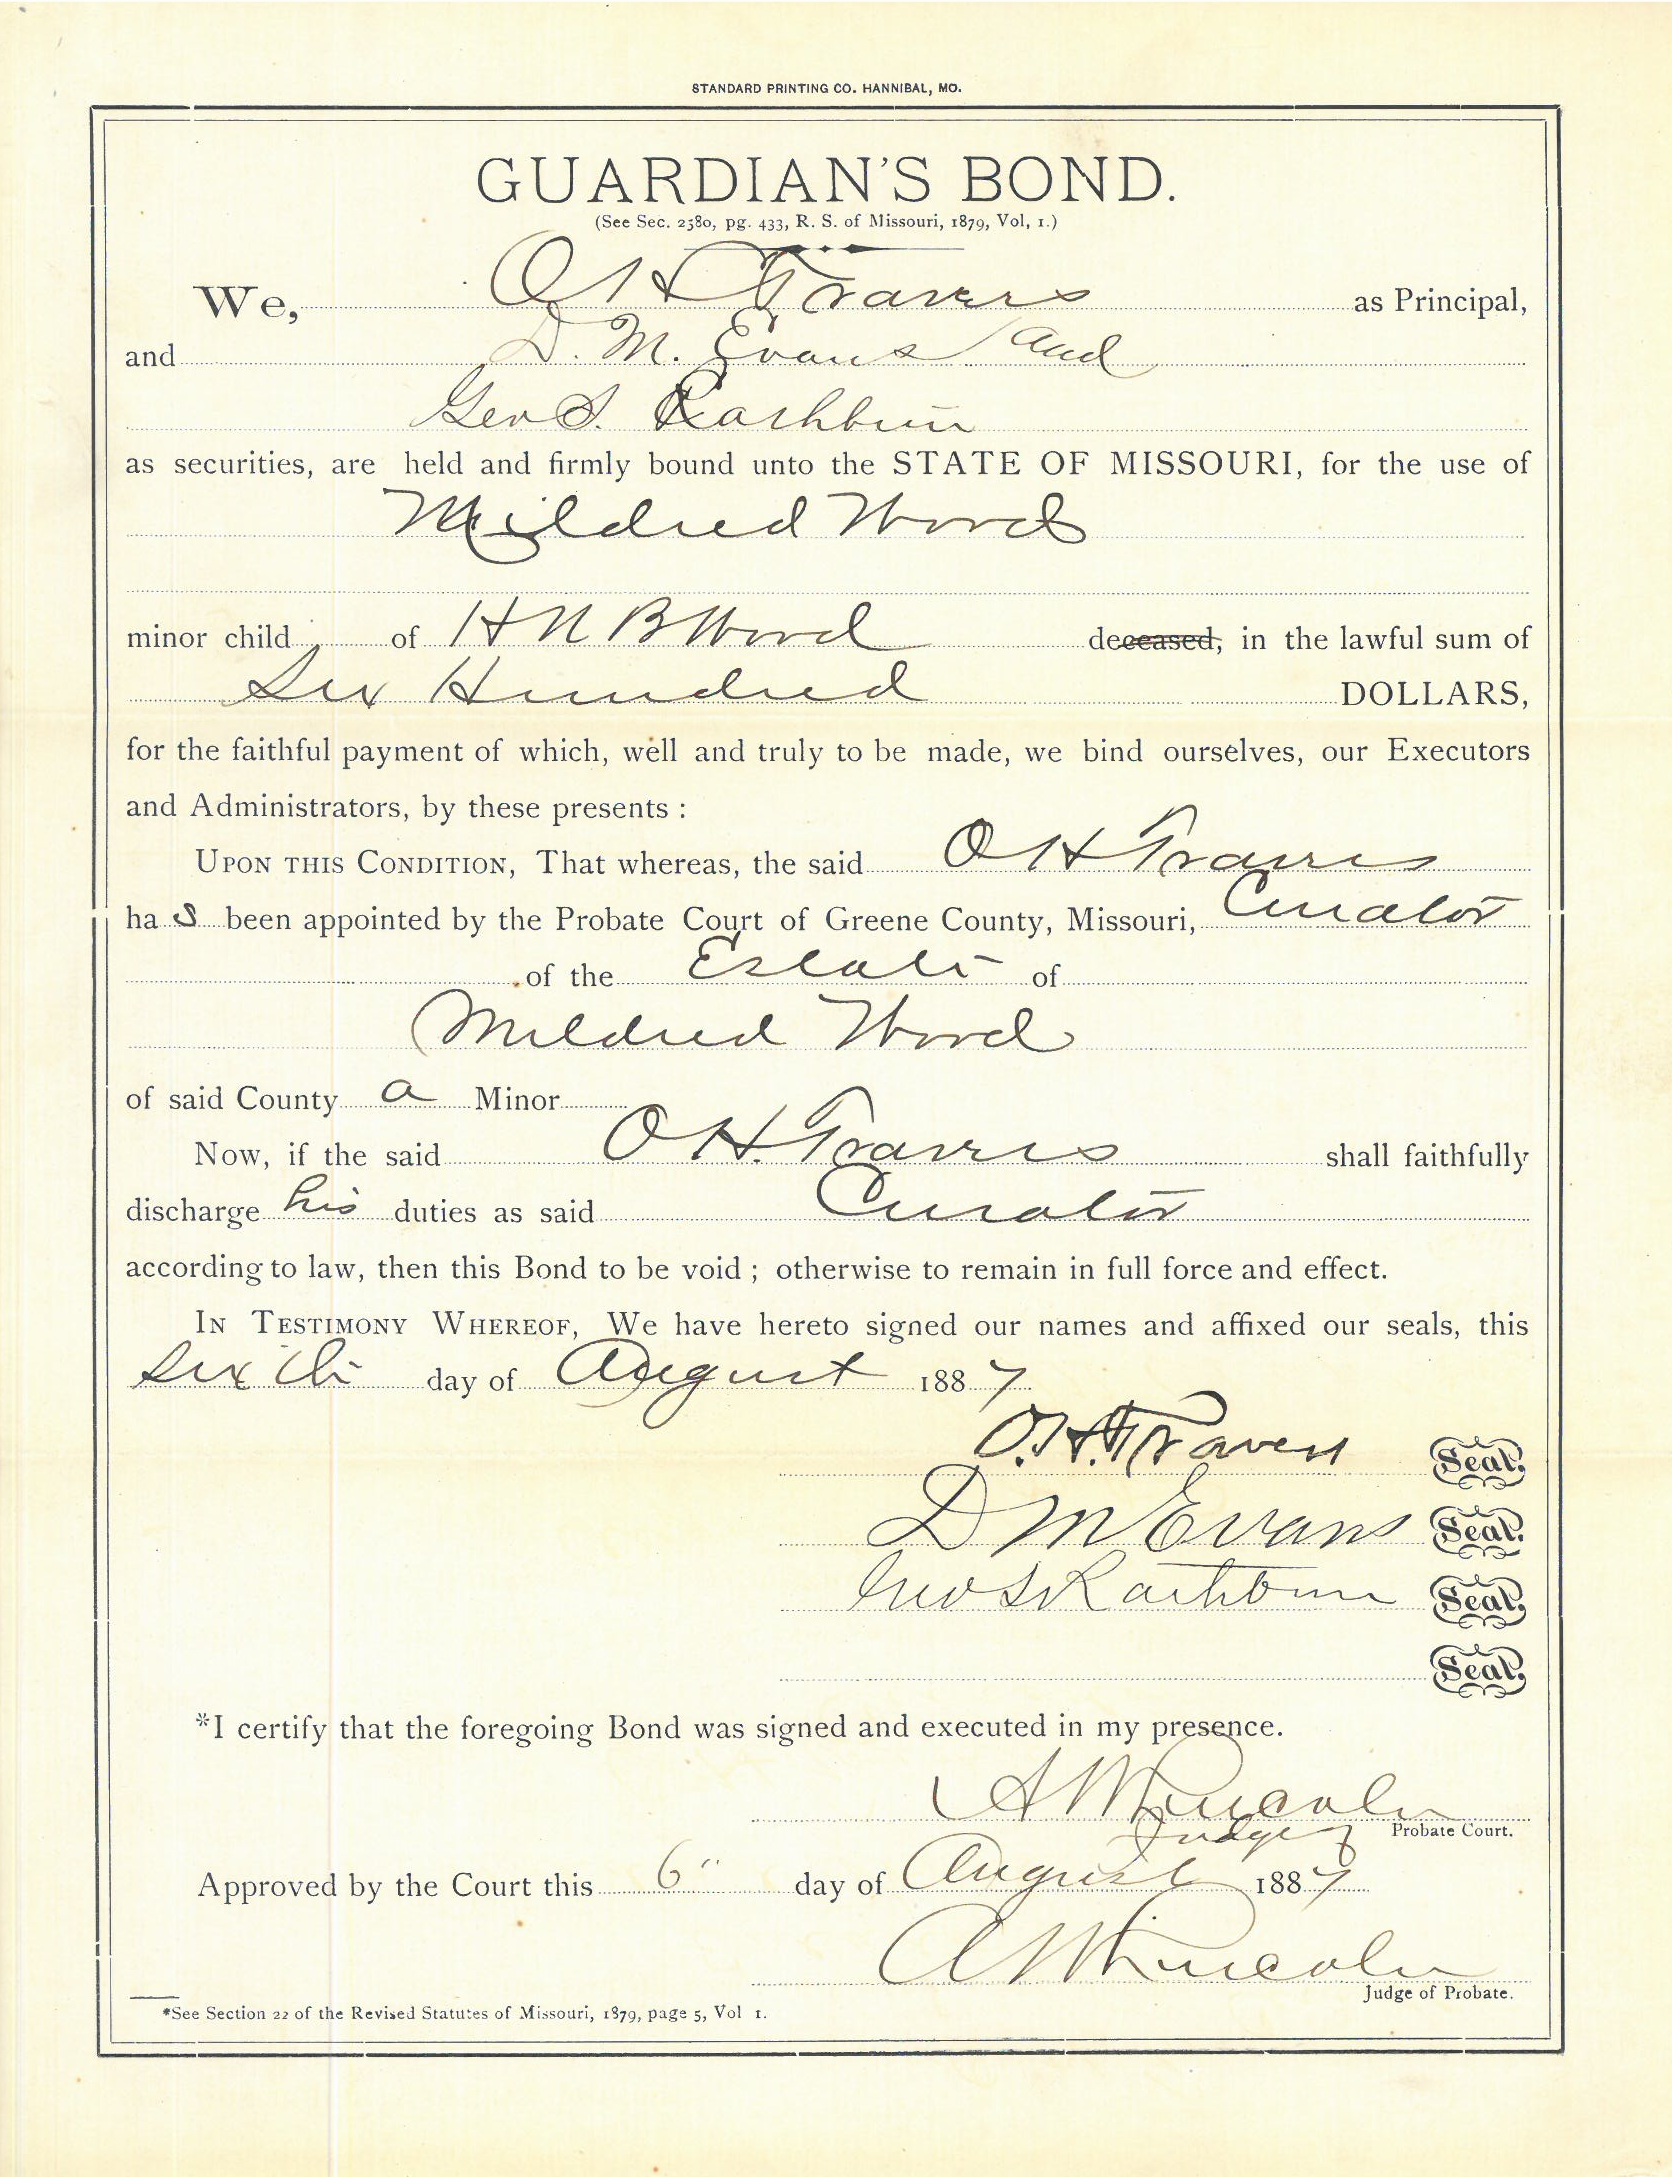 STANDARD PRINTING CO. HANNIBAL, MO.
GUARDIAN'S BOND.
(See Sec. 2580, pg. 433, R. S. of Missouri, 1879, Vol, 1.)
We, O H Travers as Principal,
and D. M. Evans and
Geo S. Rathbun
as securities, are held and firmly bound unto the STATE OF MISSOURI, for the use of
Mildred Word
minor child of H N B Word deceased, in the lawful sum of
Six Hundred DOLLARS,
for the faithful payment of which, well and truly to be made, we bind ourselves, our Executors
and Administrators, by these presents :
UPON THIS CONDITION, That whereas, the said O H Travers
ha s been appointed by the Probate Court of Greene County, Missouri, Curator
of the Estate of
Mildred Word
of said County a Minor
Now, if the said O H. Travers shall faithfully
discharge his duties as said Curator
according to law, then this Bond to be void ; otherwise to remain in full force and effect.
IN TESTIMONY WHEREOF, We have hereto signed our names and affixed our seals, this
sixth day of August 1887
O. H. Travers Seal.
D M Evans Seal.
Geo S Rathbun Seal.
Seal.
*I certify that the foregoing Bond was signed and executed in my presence.
A W Lincoln
Judge of Probate Court.
Approved by the Court this 6" day of August 1887
A W Lincoln
Judge of Probate.
*See Section 22 of the Revised Statutes of Missouri, 1879, page 5, Vol 1.